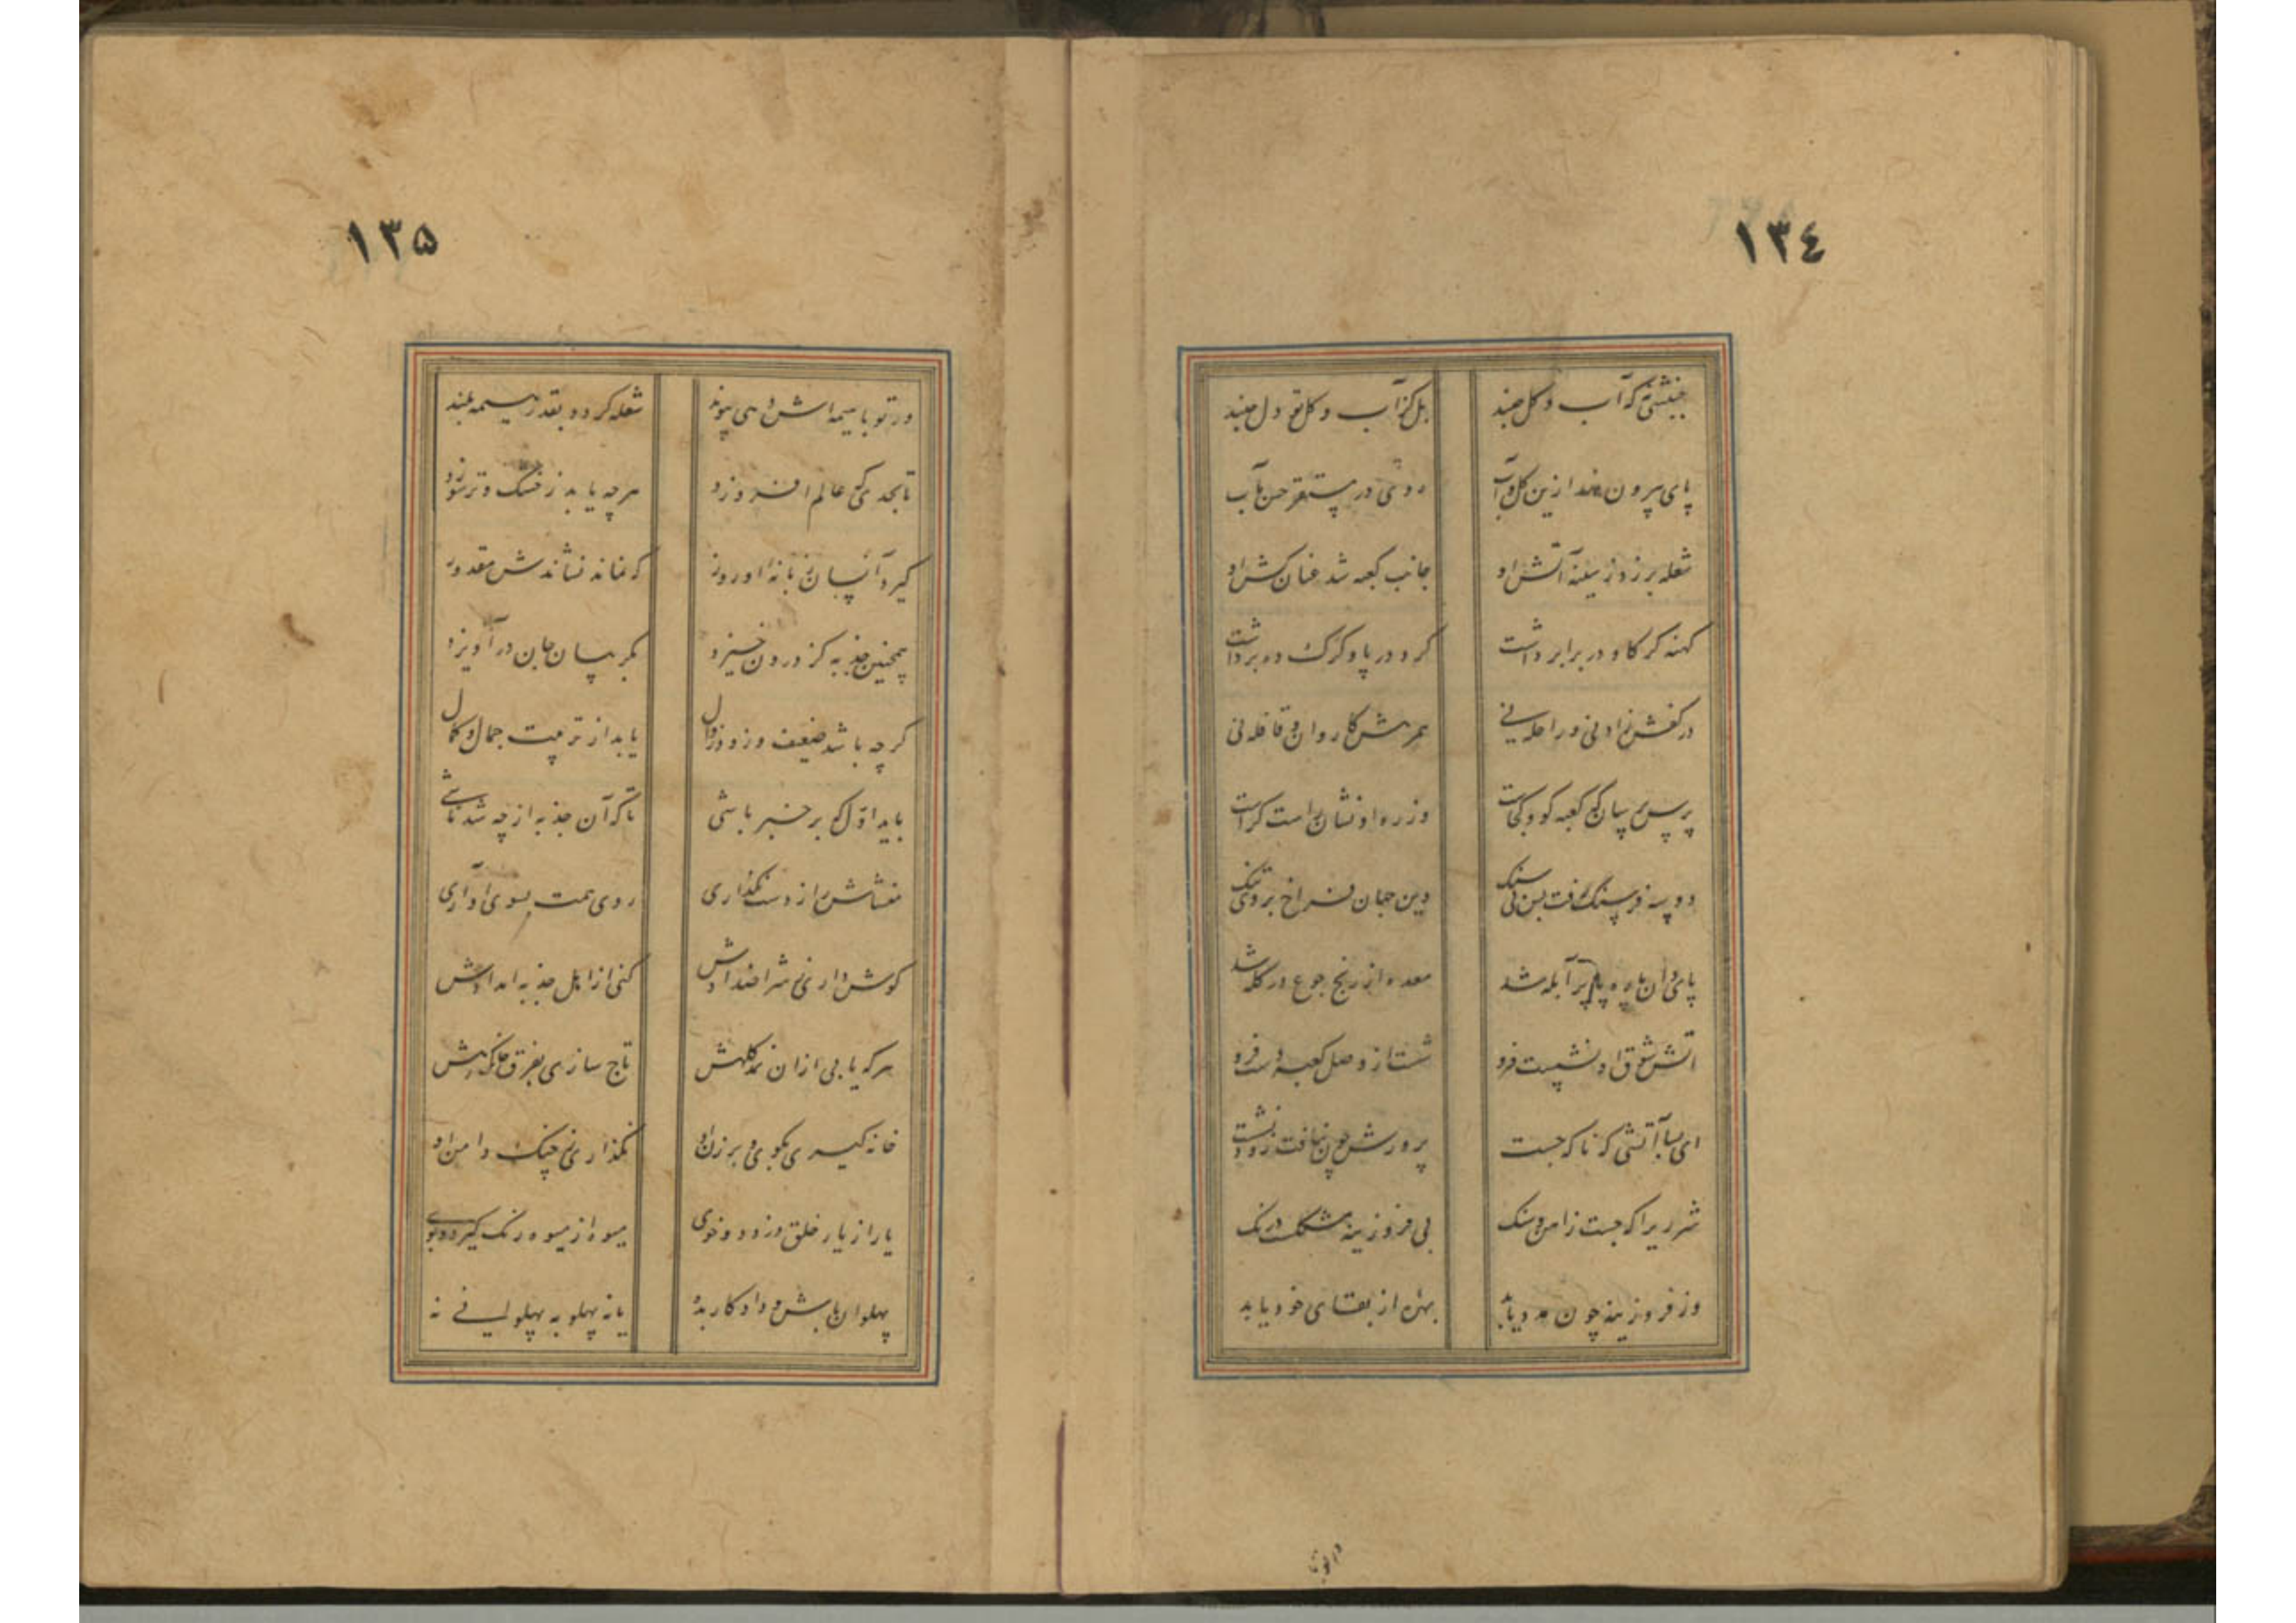 ١٣٤
جنبشی نه که آب و کل جنبد بل کز آب و کل تو دل جنبد
پای بیرون نهد ازین کل و آب روی در مستقر حسن مآب
شعله بر زد ز سینه آتش او جانب کعبه شد عنان کش او
کهنه کرکاو در برابر داشت کرد در پا و کزلک ده برداشت
در کفش زاد نی و راحله نی همرهش کاروان و قافله نی
پرس پرسان که کعبه کو و کجاست وز ره او نشان راست کراست
دو سه فرسنگ رفت بس دلتنک وین جهان فراخ بر وی تنک
پای او پر آبله شد معده از رنج جوع در کله شد
آتش شوق او نشست فرو شست از وصل کعبه دست فرو
ای بسا آتشی که ناکه جست پرورش چون نیافت زود نشست
شرر یرا که جست ز آهن و سنک بی فروزینه مشکلست درنک
وز فروزینه چون مدد یابد بهره از بقای خود یابد
١٣۵
ور تو با هیمه اش دهی پیوند شعله کردد بقدر هیمه بلند
تا بحدی که عالم افروزد هرچه یابد ز خشک و تر سوزد
کیرد آنسان زبانه او روز که نماند نشاندنش مقدور
همچنین جذبه کز درون خیزد بکریبان جان در آویزد
کرچه باشد ضعیف و زود زوال یابد از تربیت جمال و کمال
باید اول که بر خبر باشی تا که آن جذبه از چه شد ناشی
منشاش را ز دست نکذاری روی همت بسوی او آری
کوش داری ز شر اضدادش کنی از اهل جذبه امدادش
هر که یابی ازان نمد کلهش تاج سازی بفرق خاک رهش
خانه کیری بکوی و برزن او نکذاری ز چنک دامن او
یار از یار خلق دزدد و خوی میوه از میوه رنک کیرد و بوی
پهلوان باش و داد کار بده یا نه پهلو به پهلوانی نه